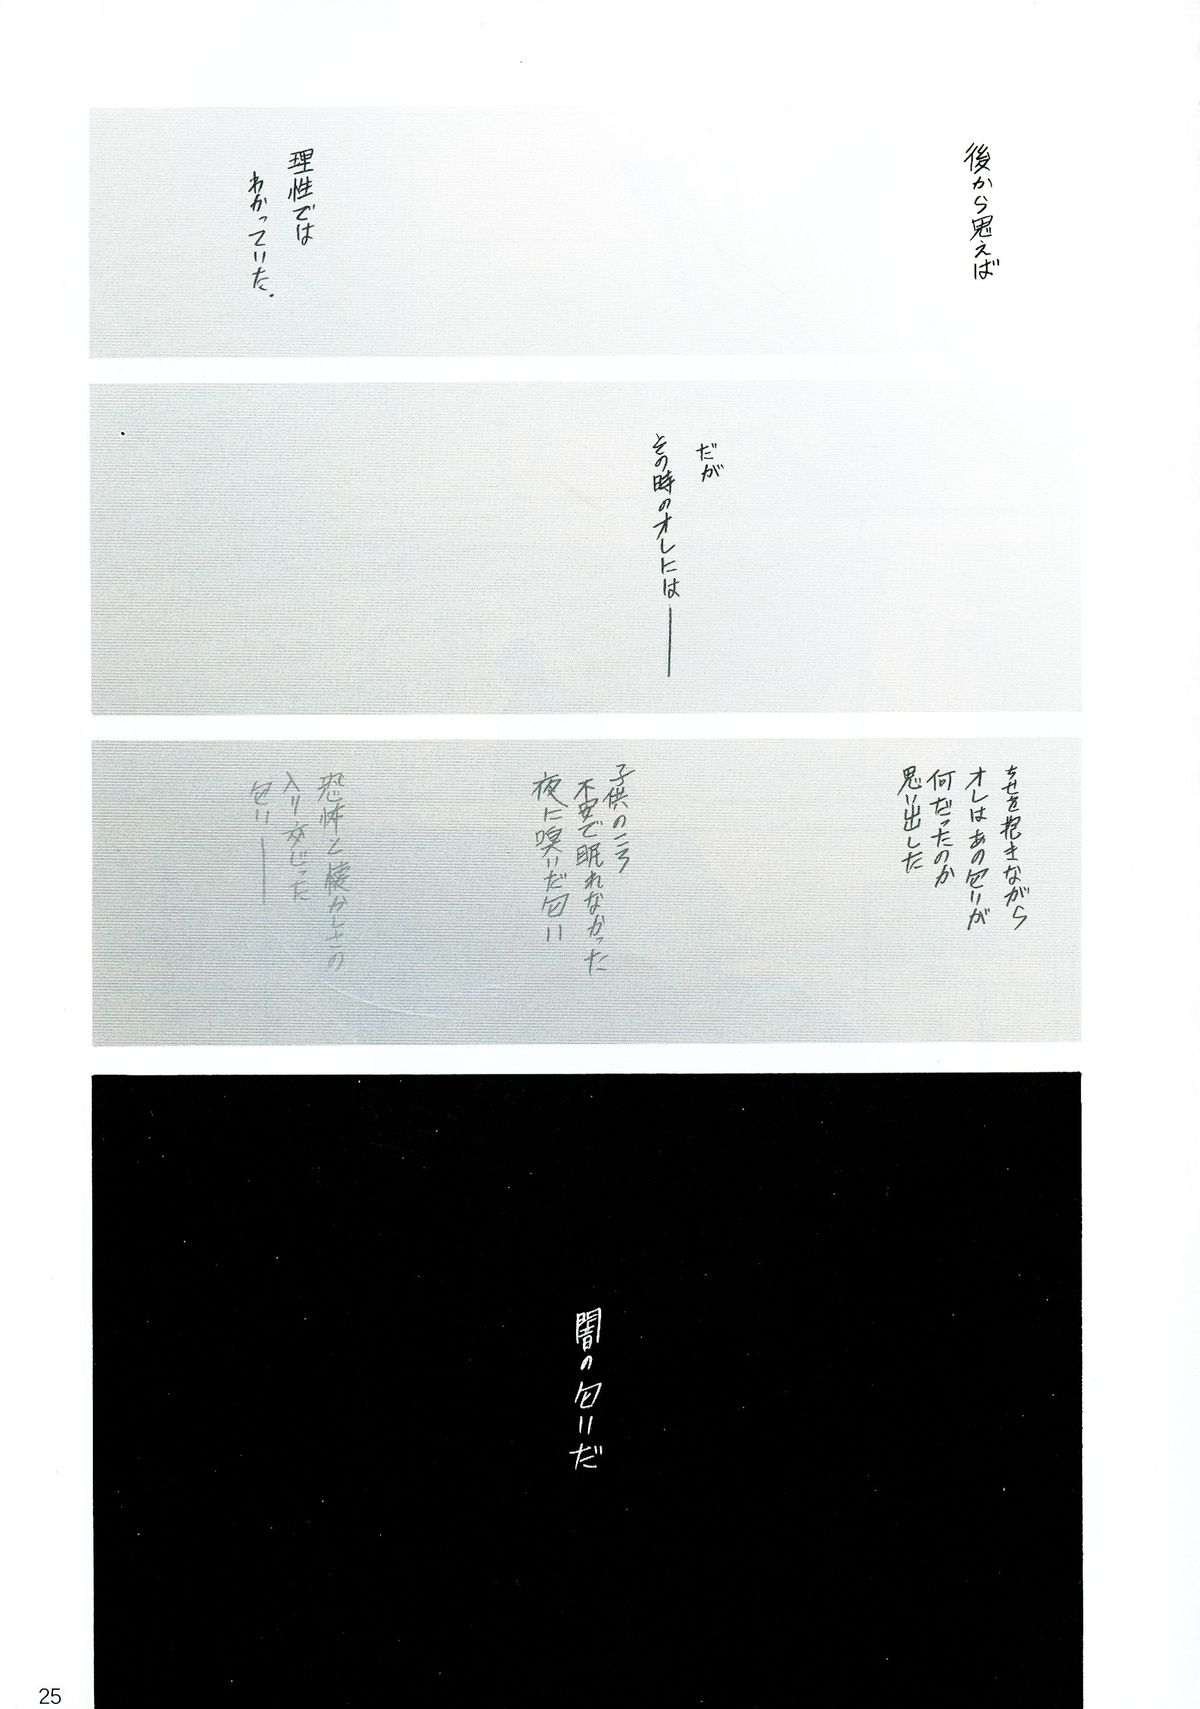 後から思えば
理性では
わかっていた.
だが
その時のオレには——
ちせを抱きながら
オレはあの匂いが
何だったのか
思い出した
子供のころ
不安で眠れなかった
夜に嗅いだ匂い
恐怖と懐かしさの
入り交じった
匂い——
闇の匂いだ
25